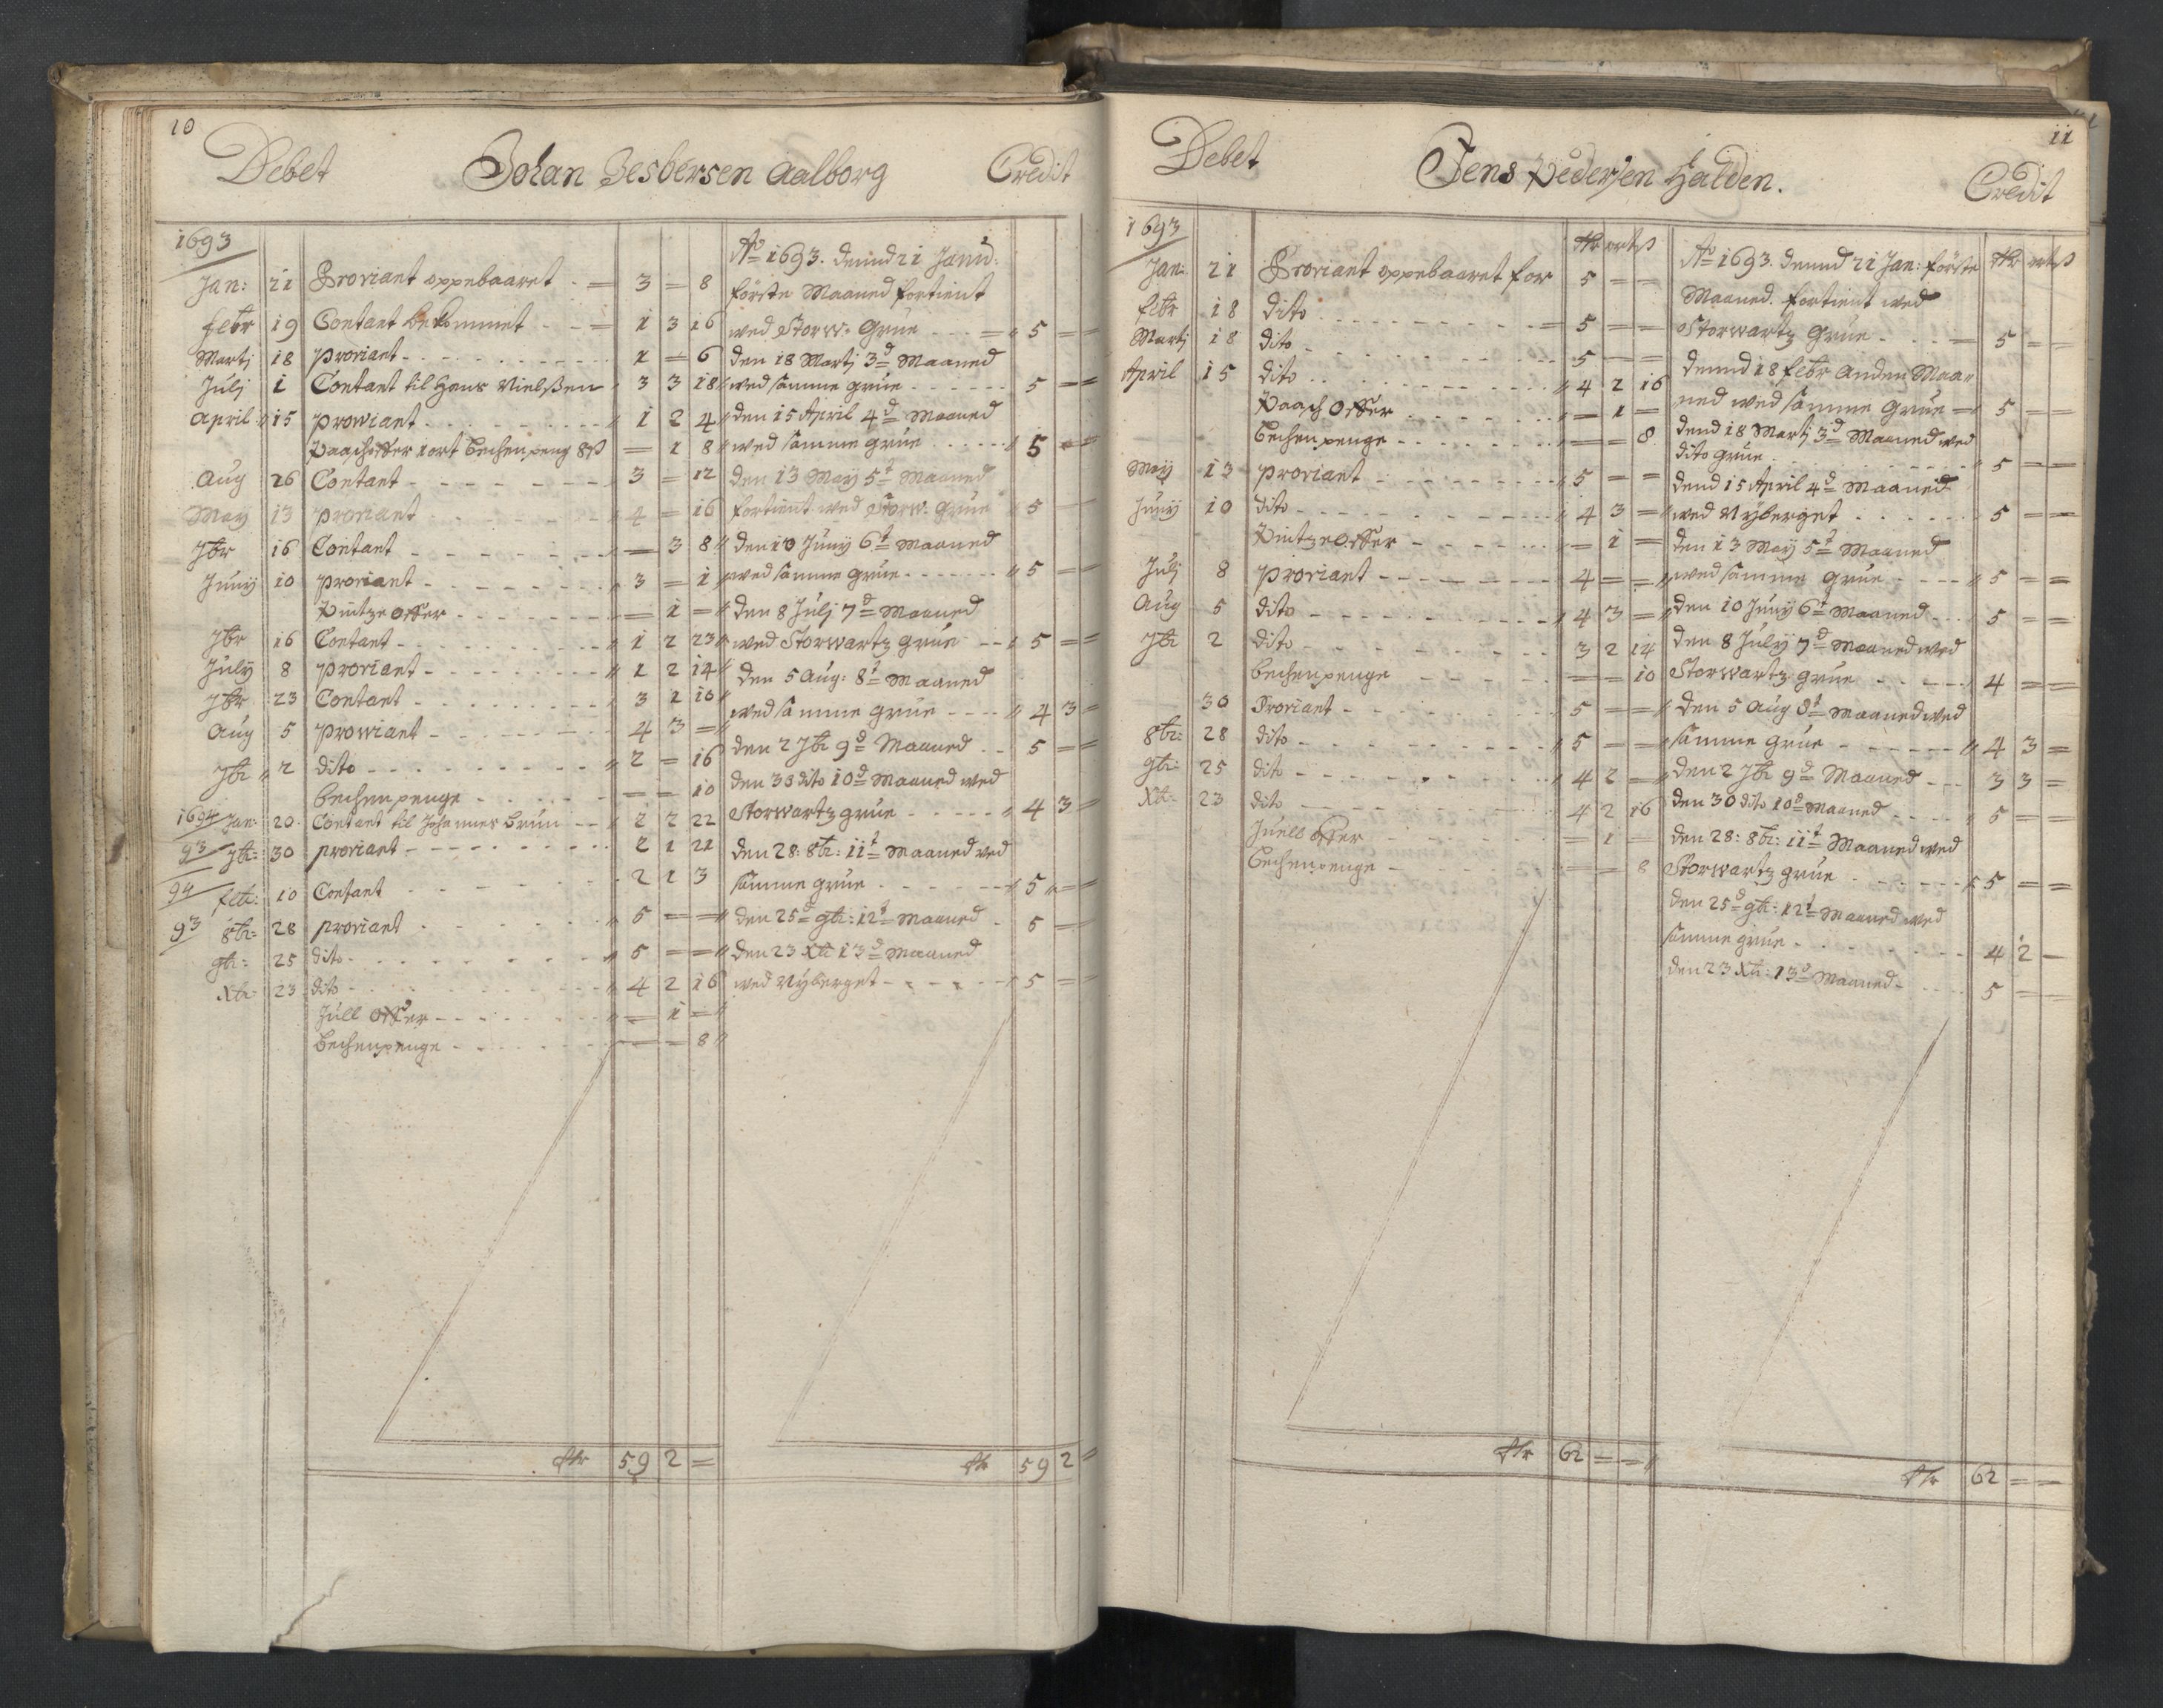 10
Debet Johan Jesbersen Aalborg Credit
1693
Jan: 21 Proviant oppebaaret - = 3 = 8
febr 19 Contant bekommet - - = 1 3 16
Martj 18 proviant - - - 1 = 6
Julj 1 Contant til Hans Nielsßen 3 3 18
April 15 prowiant - - - 1 2 4
Paaschoffer 1 ort bechenpeng 8 ß = 1 8
Aug 26 Contant - - - 3 = 12
May 13 proviant 4 = 16
7br 16 Contant - - - = 3 8
Junij 10 proviant - - - 3 = 1
Pintze offer - - - = 1 =
7br 16 Contant - - - 1 2 23
July 8 proviant - - - 1 2 14
7br 23 Contant - - - 3 1 10
Aug 5 prowiant - - - 4 3 =
7br 2 dito - - - 2 = 16
bechenpenge - - - = = 10
1694 Jan: 20 Contant til Johannes Brun - - 2 2 22
93 7br: 30 proviant - - - 2 1 21
94 febr: 10 Contant - - - 2 1 3
93 8br: 28 proviant - - - 5 = =
9br: 25 dito - - - 5 = =
Xbr: 23 dito - - - 4 2 16
Jull offer - - - = 1 =
Bechenpenge - - - = = 8
Rdr 59 2 =
Ao 1693. dennd 21 Janu:
förste Maaned fortient
wed Storw. Grue - - - = 5 = =
den 18 Martj 3d Maaned
wed samme grue - - - 5 = =
den 15 April 4d Maaned
wed samme grue - - - 5 = =
den 13 May 5t Maaned
fortient wed Storw. grue 5 = =
den 10 Junij 6t Maaned
wed samme grue - - - 5 = =
den 8 Julj 7d Maaned
wed Storwartz grue - - 5 = =
den 5 Aug: 8t Maaned
wed samme grue - - - 4 3 =
den 2 7br 9d Maaned - - 5 = =
den 30 dito 10d Maaned wed
Storwartz grue - - - 4 3 =
den 28: 8br: 11t Maaned wed
samme grue - - - 5 = =
den 25d 9br: 12t Maaned - 5 = =
den 23 Xbr 13d Maaned
wed Nyberget - - - 5 = =
Rdr 59 2 =
11
Debet Jens Pedersen Halden. Credit
1693 Rdr ort ß
Jan: 21 Proviant oppebaaret for 5 = =
febr 18 dito - - - 5 = =
Martj 18 dito - - - 5 = =
April 15 dito - - - 4 2 16
Paasch offer - - - = 1 =
bechenpenge - - - = = 8
May 13 proviant - - - 5 = =
Junij 10 dito - - - 4 3 =
Pintze offer - - - = 1 =
Julj 8 proviant - - - 4 = =
Aug 5 dito - - - 4 3 =
7br 2 dito - - - 3 2 14
bechenpenge - - - = = 10
30 Proviant - - - 5 = =
8br: 28 dito - - - 5 = =
9br: 25 dito - - - 4 2 =
Xbr: 23 dito - - - 4 2 16
Juell offer - - - = 1 =
bechenpenge - - - = = 8
Rdr 62 = =
Ao 1693. dennd 21 Jan: förste Rdr ort ß
Maaned. fortient wed
Storwartz Grue - - - 5 = =
dennd 18 febr anden Maa=
ned wed samme Grue = 5 = =
dend 18 Martj 3d Maaned wed
dito grue - - - 5 = =
dend 15 April 4d Maaned
wed Nyberget - - - 5 = =
den 13 May 5t Maaned
wed samme grue - - - 5 = =
den 10 Junij 6t Maaned - - 5 = =
den 8 July 7d Maaned wed
Storwartz grue - - - 4 = =
den 5 Aug 8t Maaned wed
samme grue - - - 4 3 =
den 2 7br 9d Maaned - - 3 3 =
den 30 dito 10d Maaned - - - 5 = =
den 28: 8br: 11t Maaned wed
Storwartz grue - - - 5 = =
den 25d 9br: 12t Maaned wed
samme grue - - - 4 2 =
den 23 Xbr: 13d Maaned - - - 5 = =
Rdr 62 = =